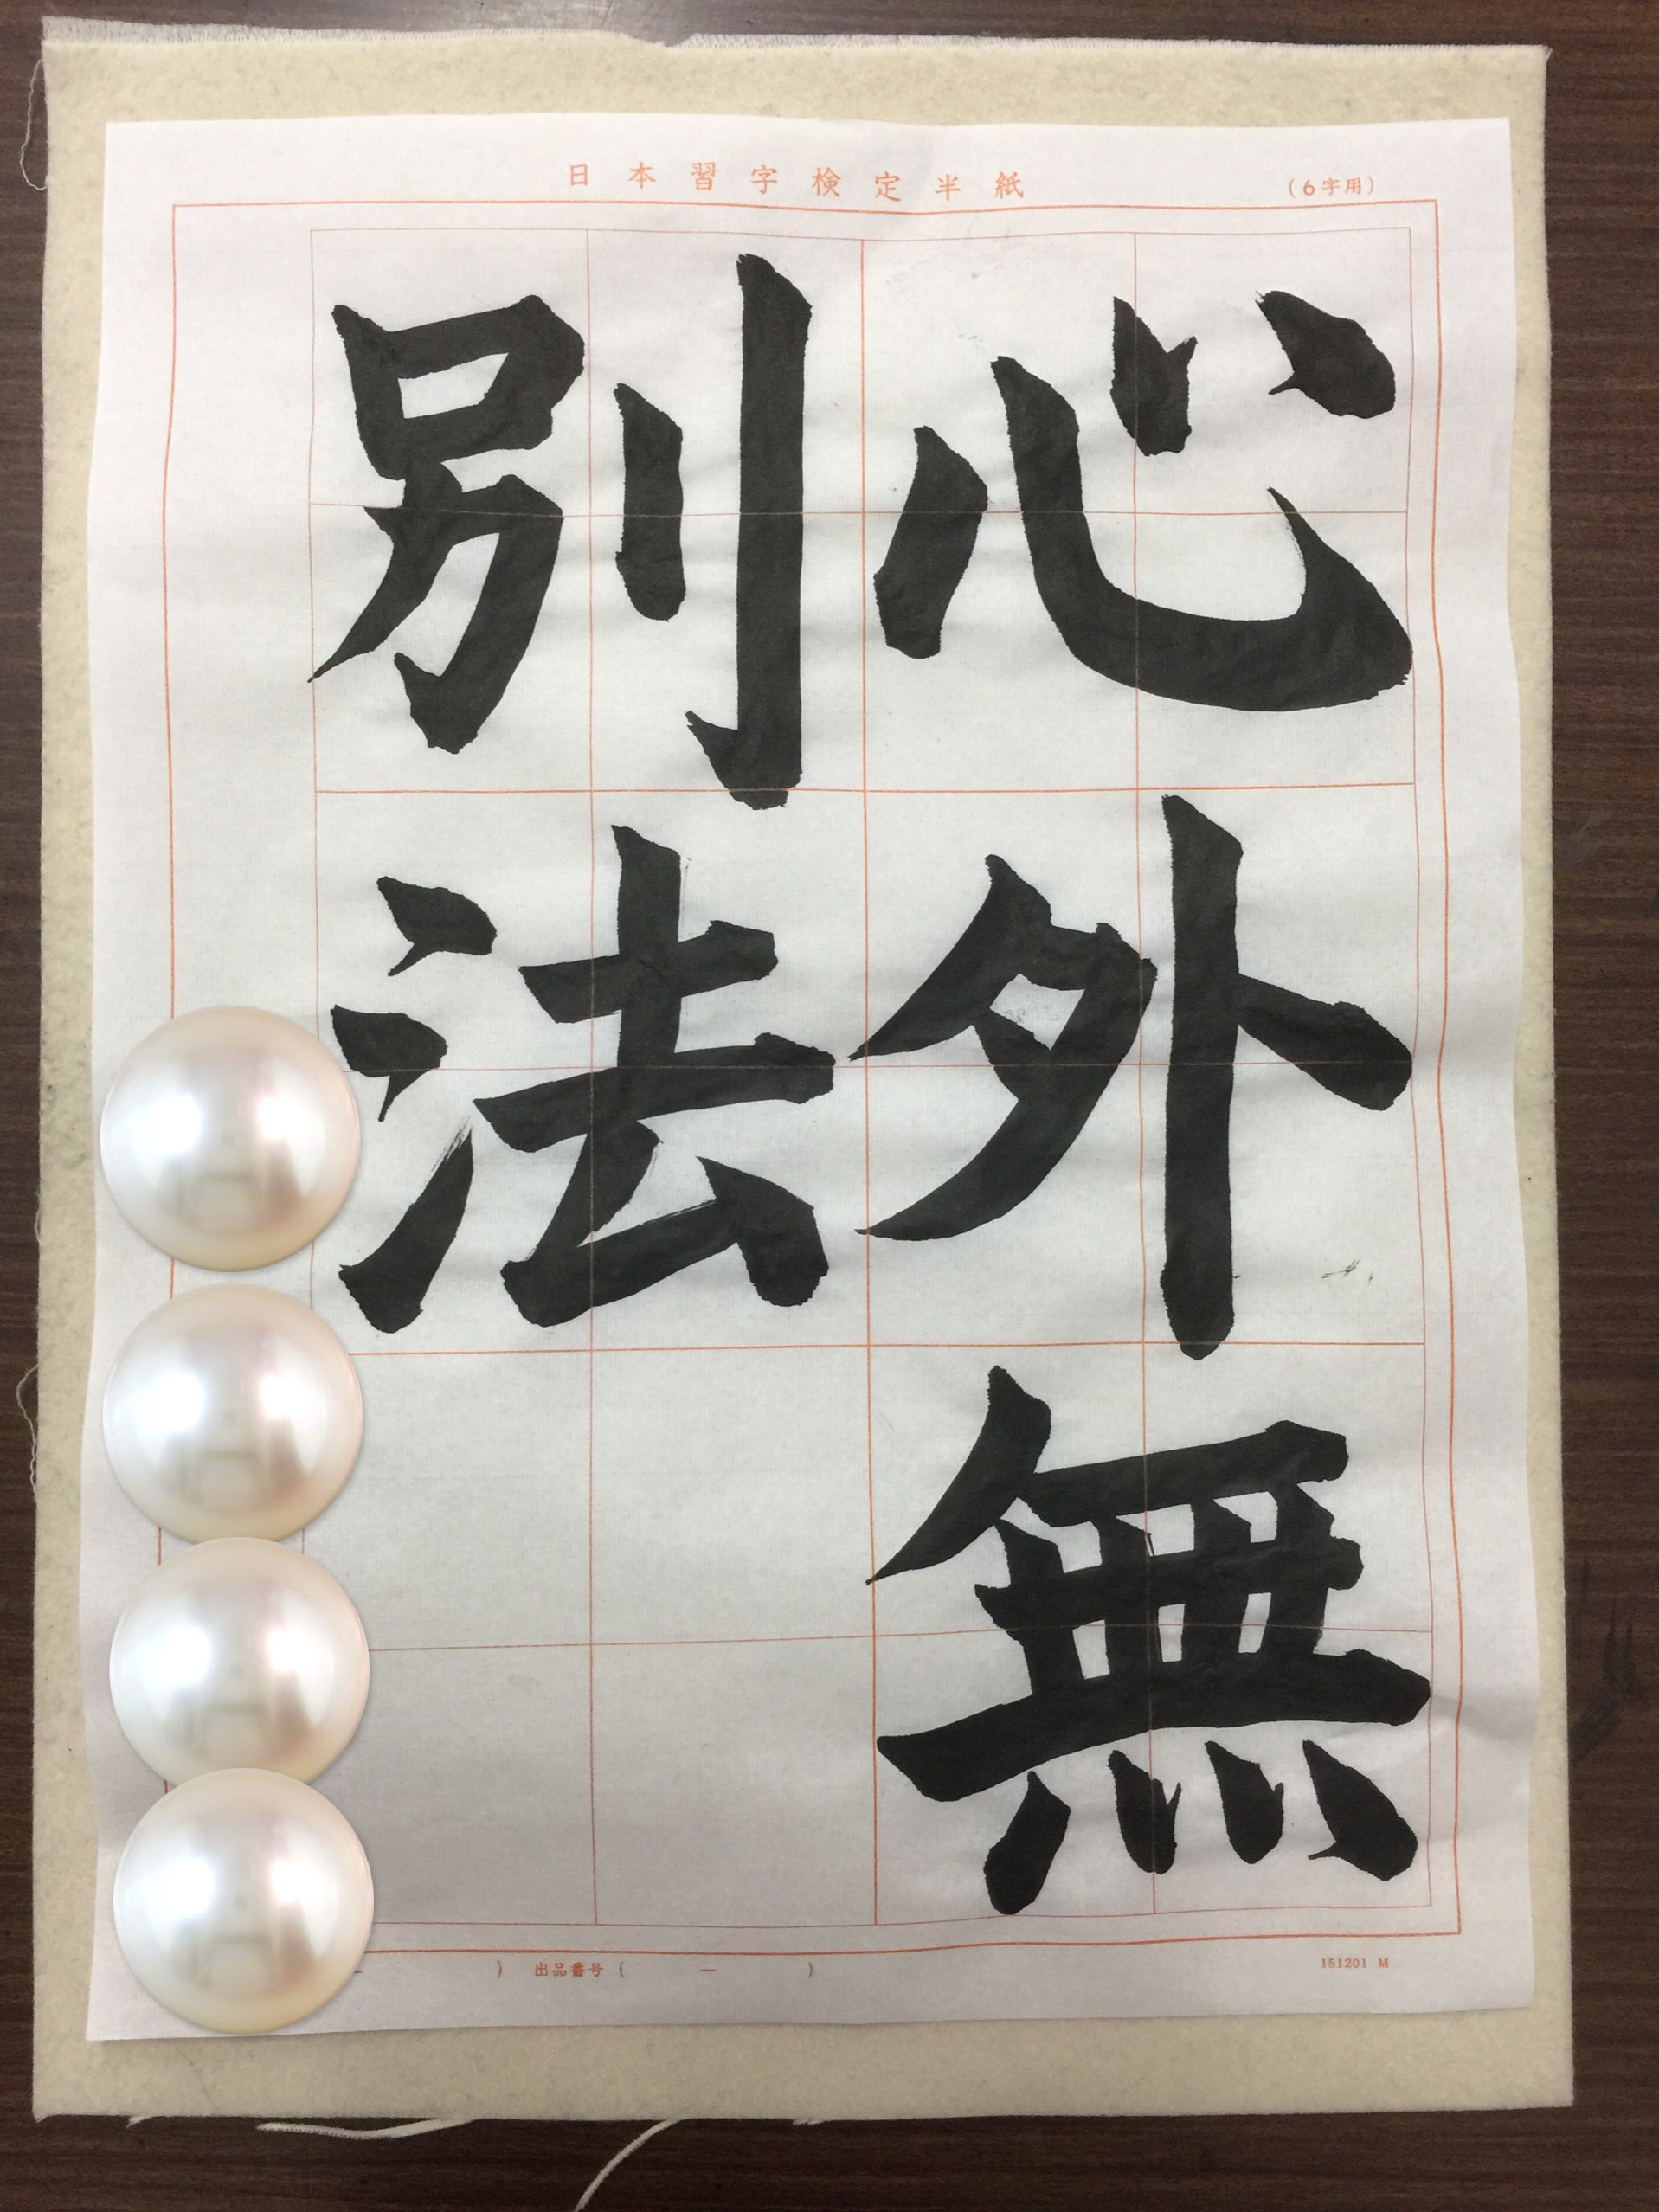 日本習字検定半紙
(6字用)
心外無
別法
) 出品番号 ( — )
151201 M